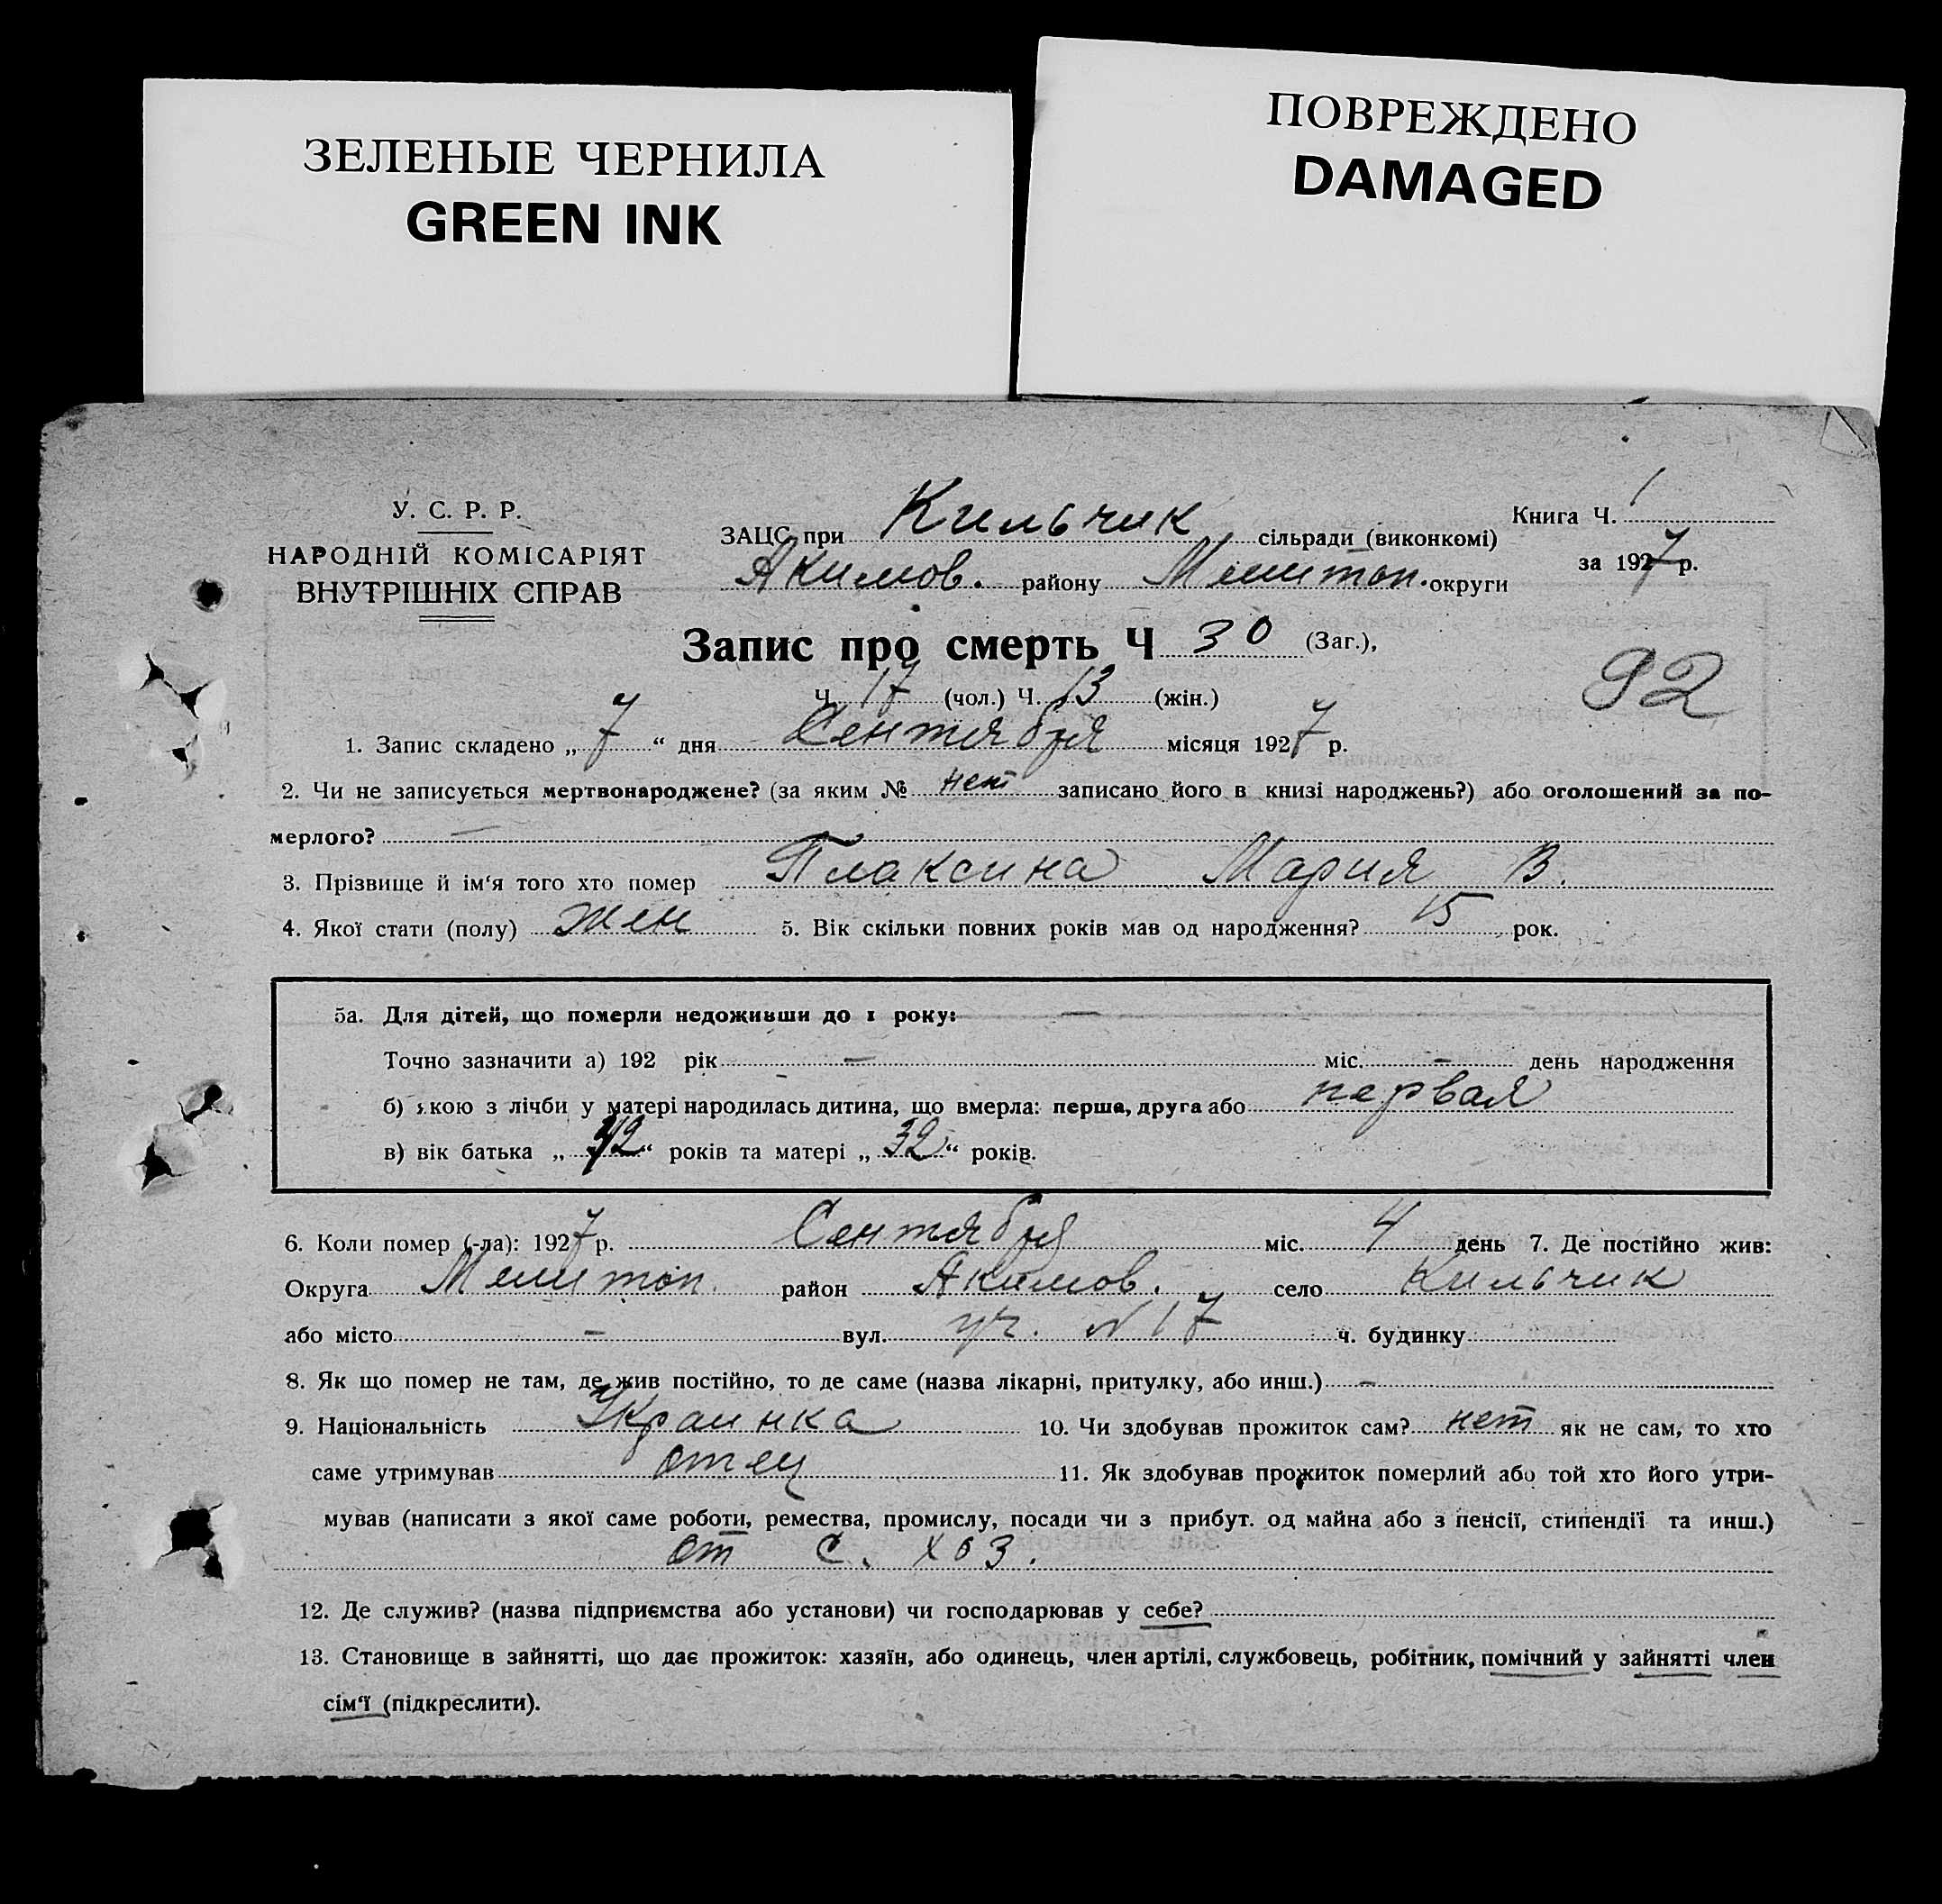 ЗЕЛЕНЫЕ ЧЕРНИЛА
GREEN INK
ПОВРЕЖДЕНО
DAMAGED
У. С. Р. Р.
НАРОДНІЙ КОМІСАРІЯТ
ВНУТРІШНІХ СПРАВ
ЗАЦС при Кильчик сільради (виконкомі)
Акимов. району Мелитоп. округи
Книга Ч. 1
за 1927 р.
Запис про смерть Ч 30 (Заг.),
92
Ч. 17 (чол.) Ч. 13 (жін.)
1. Запис складено „ 7 “ дня Сентября місяця 1927 р.
2. Чи не записується мертвонароджене? (за яким № нет записано його в книзі народжень?) або оголошений за по-
мерлого? —
3. Прізвище й ім‘я того хто помер Плаксина Мария В.
4. Якої стати (полу) жен 5. Вік скільки повних років мав од народження? 15 рок.
5а. Для дітей, що померли недоживши до 1 року: —
Точно зазначити а) 192 рік — міс. — день народження
б) якою з лічби у матері народилась дитина, що вмерла: перша, друга або первая
в) вік батька „ 42 “ років та матері „ 32 “ років.
6. Коли помер (-ла): 1927 р. Сентября міс. 4 день 7. Де постійно жив:
Округа Мелитоп. район Акимов. село Кильчик
або місто — вул. уч. N 17 ч. будинку
8. Як що помер не там, де жив постійно, то де саме (назва лікарні, притулку, або инш.) —
9. Національність Украинка 10. Чи здобував прожиток сам? нет як не сам, то хто
саме утримував отец 11. Як здобував прожиток померлий або той хто його утри-
мував (написати з якої саме роботи, ремества, промислу, посади чи з прибут. од майна або з пенсії, стипендії та инш.)
от с. хоз.
12. Де служив? (назва підприємства або установи) чи господарював у себе?
13. Становище в зайнятті, що дає прожиток: хазяїн, або одинець, член артілі, службовець, робітник, помічний у зайнятті член
сім‘ї (підкреслити).